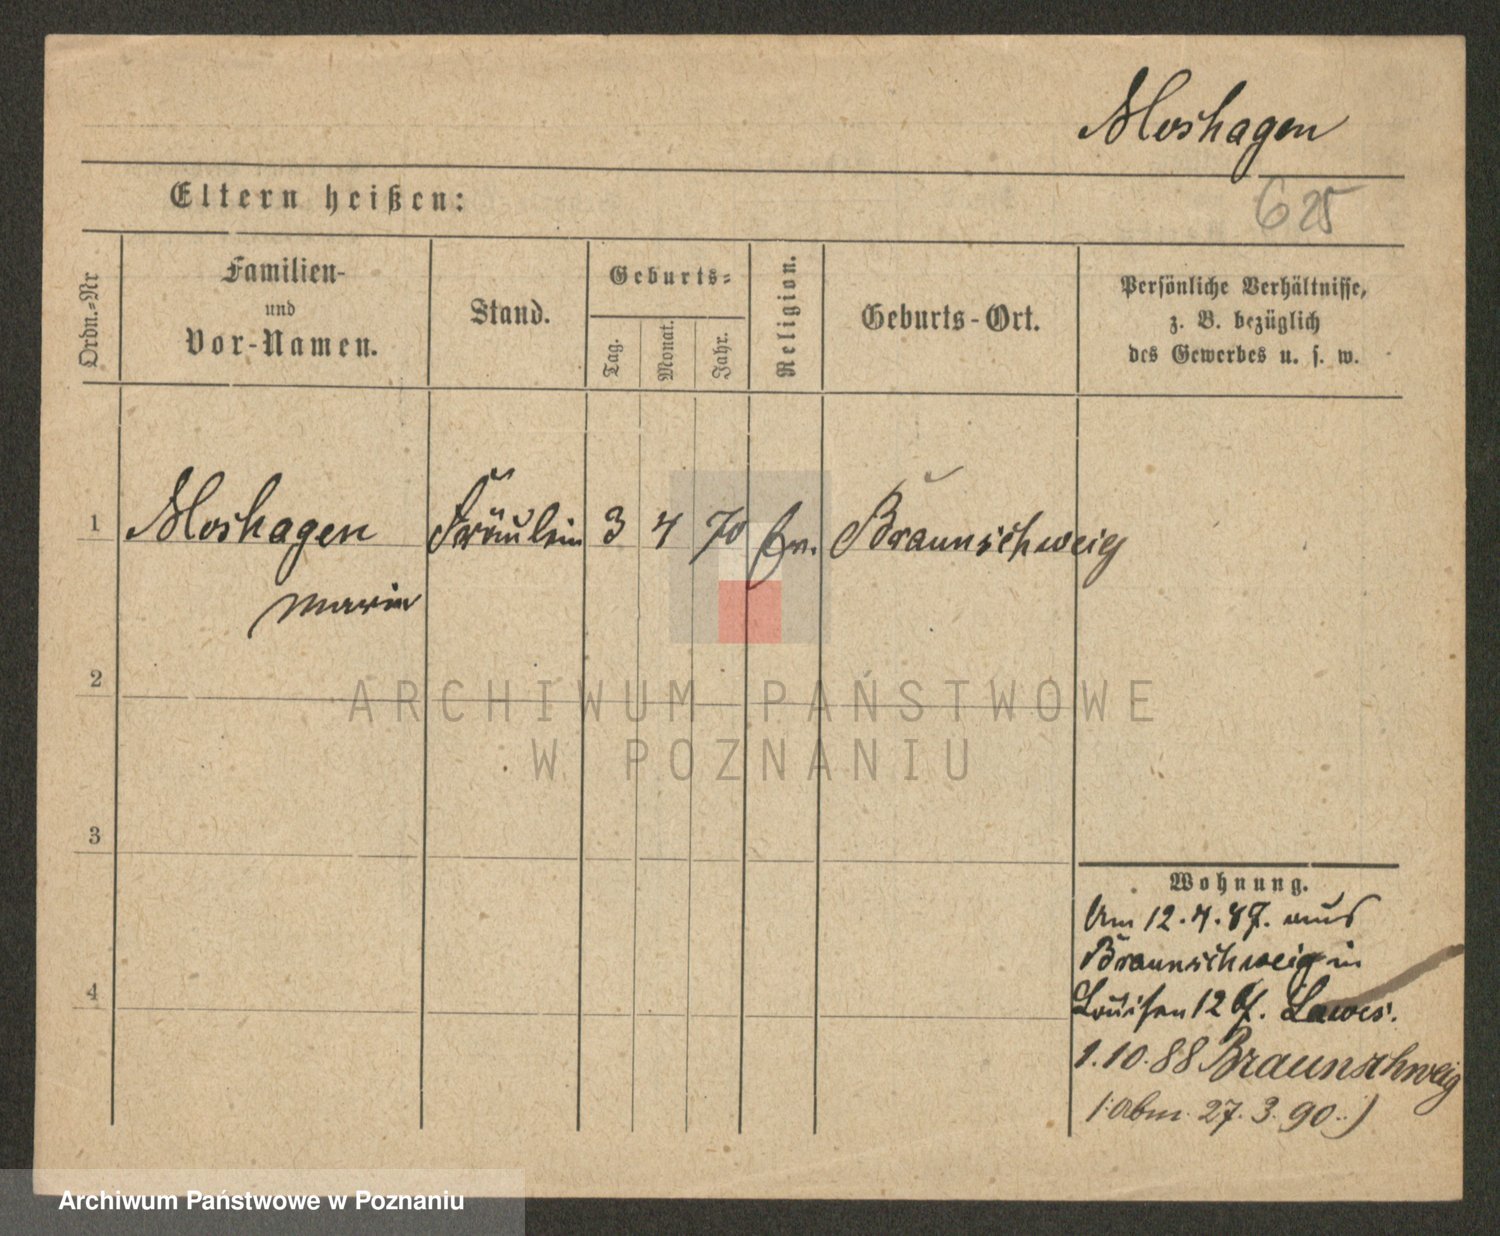 Moshagen
Eltern heißen:
625
Ordn.-Nr
Familien-
und
Vor-Namen.
Stand.
Geburts-
Tag.
Monat.
Jahr.
Religion.
Geburts-Ort.
Persönliche Verhältnisse,
z. B. bezüglich
des Gewerbes u. s. w.
1 Moshagen Fräulein 3 4 70 ev. Braunschweig
Marie
2
ARCHIWUM PAŃSTWOWE
W POZNANIU
3
Wohnung.
Am 12.4.87. aus
Braunschweig in
4
Louisen 12 b/.
1.10.88 Braunschweig
/:abm. 27.3.90.:/
Archiwum Państwowe w Poznaniu